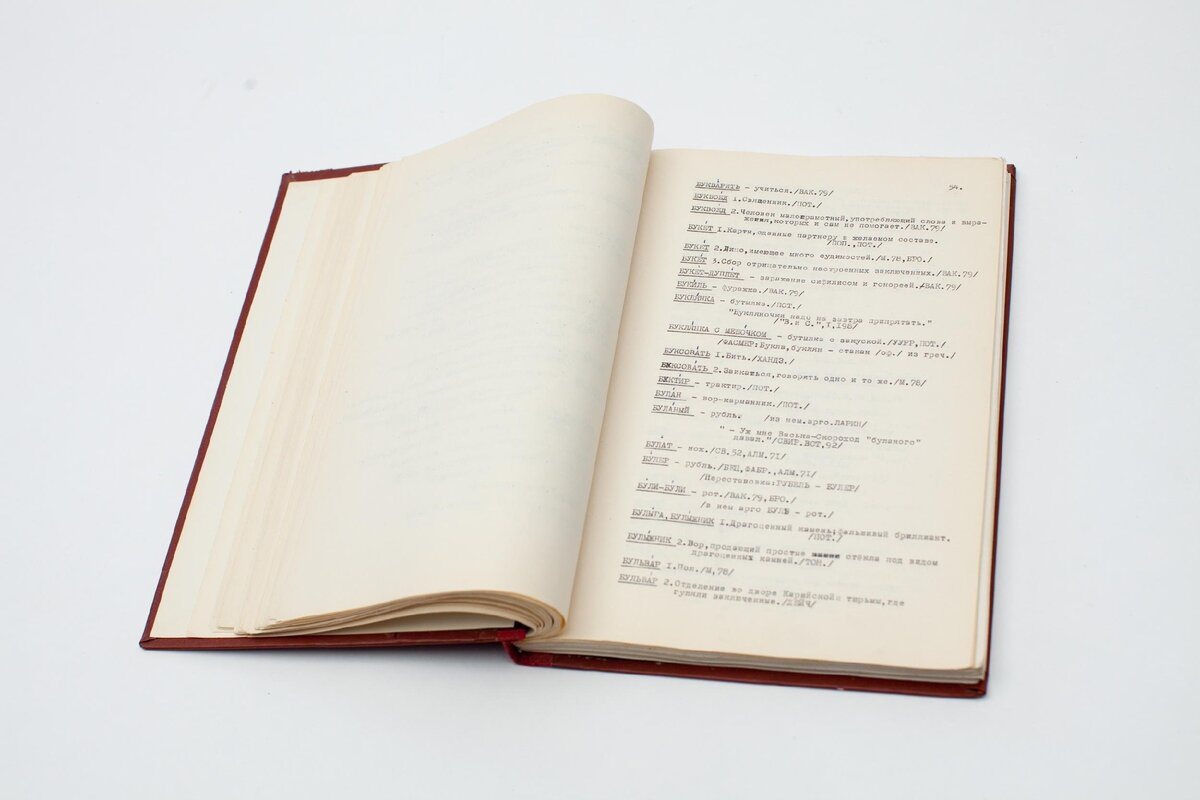 54.
БУКВА́РИТЬ - учиться./ВАК.79/
БУКВОЕ́Д 1.Священник./ПОТ./
БУКВОЕ́Д 2.Человек малограмотный,употребляющий слова и выра-
жения,которых и сам не помогает./ВАК.79/
БУКЕ́Т 1.Карты,сданные партнеру в желаемом составе.
/ПОП.,ПОТ./
БУКЕ́Т 2.Лицо,имеющее много судимостей./М.78,БРО./
БУКЕ́Т 3.Сбор отрицательно настроенных заключенных./ВАК.79/
БУКЕ́Т-ДУПЛЕ́Т - заражение сифилисом и гонореей./ВАК.79/
БУКИ́ЛЬ - фуражка./ВАК.79/
БУКЛЯ́НКА - бутылка./ПОТ./
"Букляночки надо на завтра припрятать."
/"В.и С.",I,198/
БУКЛЯ́НКА С МЕШО́ЧКОМ - бутылка с закуской./УУРР,ПОТ./
/ФАСМЕР:Букла,буклян - стакан /оф./ из греч./
БУКСОВА́ТЬ 1.Бить./ХАНДЗ./
БУКСОВА́ТЬ 2.Заикаться,говорить одно и то же./М.78/
БУКТИ́Р - трактир./ПОТ./
БУЛА́Н - вор-карманник./ПОТ./
БУЛА́НЫЙ - рубль. /из нем.арго.ЛАРИН/
" - Уж мне Васька-Скороход "буланого"
давал."/СВИР.ВОТ,92/
БУЛА́Т - нож./СВ.52,АЛМ.71/
БУ́ЛЕР - рубль./БЕЦ,ФАБР.,АЛМ.71/
/Перестановка:РУБЕЛЬ - БУЛЕР/
БУ́ЛИ-БУ́ЛИ - рот./ВАК.79,БРО./
/в нем арго БУЛЬ - рот./
БУЛЫ́ГА,БУЛЫ́ЖНИК 1.Драгоценный камень;фальшивый бриллиант.
/ПОТ./
БУЛЫ́ЖНИК 2.Вор,продающий простые стёкла под видом
драгоценных камней./ТОН./
БУЛЬВА́Р 1.Пол./М,78/
БУЛЬВА́Р 2.Отделение во дворе Карийской тюрьмы,где
гуляли заключенные./ДЕЙЧ/